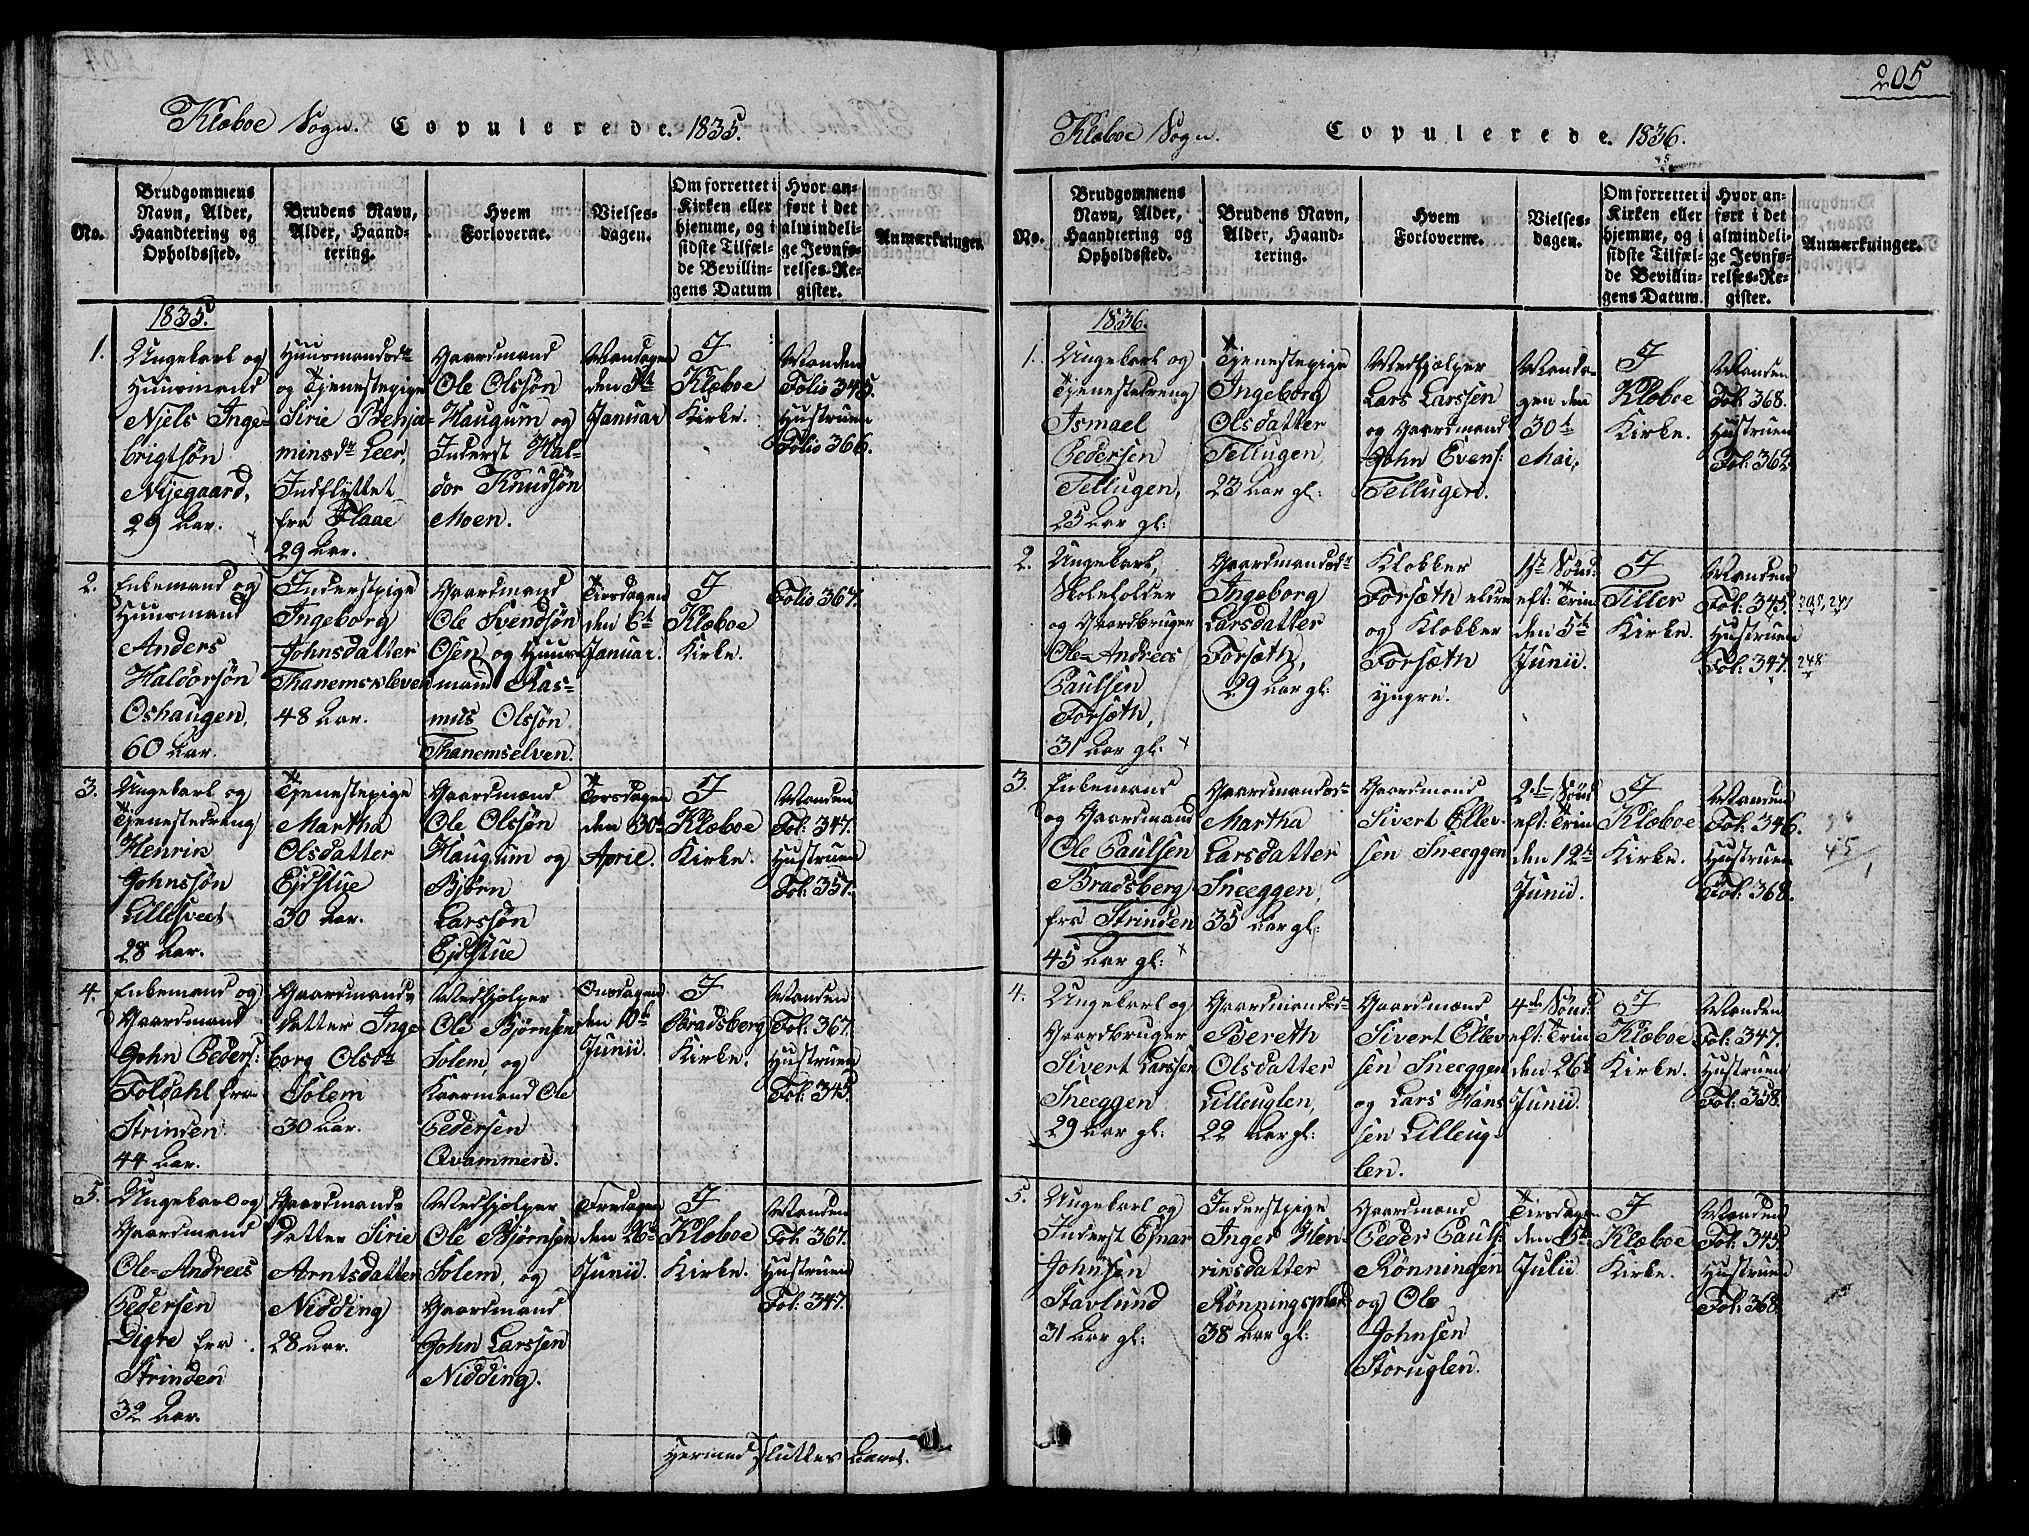 205
Klæboe Sogn. Copulerede. 1835.
No.
Brudgommens
Navn, Alder,
Haandtering og
Opholdssted.
Brudens Navn,
Alder, Haand-
tering.
Hvem
Forloverne.
Vielses-
dagen.
Om forrettet i
Kirken eller
hjemme, og i
sidste Tilfæl-
de Bevillin-
gens Datum
Hvor an-
ført i det
almindeli-
ge Jevnfø-
relses-Re-
gister.
Anmærkninger.
1835.
1.
Ungekarl og
Huusmand
Niels Inge-
brigtsøn
Nijegaard,
29 Aar.
Huusmandsdtr
og Tjenestepige
Sirie Benja-
minsdtr Leer,
Indflyttet
fra Flaae
29 Aar.
Gaardmænd
Ole Olssøn
Haugum og
Inderst Hal-
dor Knudsøn
Moen.
Mandagen
den 5te
Januar
I
Klæboe
Kirke.
Manden
Folio 345.
Hustruen
Folio 366.
2.
Enkemand og
Huusmand
Anders
Haldorsøn
Oshaugen,
60 Aar.
Inderstpige
Ingeborg
Johnsdatter
Thanemskleven
48 Aar.
Gaardmand
Ole Svendsøn
Osen og Huus-
mand Ras-
mus Olssøn
Thanemselven.
Tirsdagen
den 6te
Januar.
I
Klæboe
Kirke.
Folio 367.
3.
Ungekarl og
Tjenestedreng
Henrik
Johnssøn
Lillesveet
28 Aar.
Tjenestepige
Martha
Olsdatter
Ejdstue
30 Aar.
Gaardmænd
Ole Olssøn
Haugum og
Bjørn
Larssøn
Ejdstue
Torsdagen
den 30te
April.
I
Klæboe
Kirke.
Manden
Fol: 347.
Hustruen
Fol: 357.
4.
Enkemand og
Gaardmand
John Peders:
Foldahl fra
Strinden
44 Aar.
Gaardmands
Datter Inge
borg Olsdtr
Solem
30 Aar.
Medhjelper
Ole Bjørnsen
Solem, og
Kaarmand Ole
Pedersen
Qvammen.
Onsdagen
den 10de
Junii.
I
Bradsberg
Kirke.
Manden
Fol: 367.
Hustruen
Fol: 345.
5.
Ungekarl og
Gaardmand
Ole-Andreas
Pedersen
Digre fra
Strinden
32 Aar.
Gaardmands
Datter Sirie
Arntsdatter
Nidding
28 Aar.
Medhjelper
Ole Bjørnsen
Solem, og
Gaardmand
John Larssen
Nidding.
Fredagen
den 26de
Junii.
I
Klæboe
Kirke.
Manden
Fol: 367.
Hustruen
Fol: 347.
Hermed sluttes Aaret.
Klæboe Sogn. Copulerede. 1836.
No.
Brudgommens
Navn, Alder,
Haandtering og
Opholdssted.
Brudens Navn,
Alder, Haand-
tering.
Hvem
Forloverne.
Vielses-
dagen.
Om forrettet i
Kirken eller
hjemme, og i
sidste Tilfæl-
de Bevillin-
gens Datum.
Hvor an-
ført i det
almindeli-
ge Jevnfø-
relses-Re-
gister.
Anmærkninger.
1836.
1.
Ungekarl og
Tjenestedreng
Ismael
Pedersen
Tellugen,
25 Aar gl:
Tjenestepige
Ingeborg
Olsdatter
Tellugen,
23 Aar gl:
Medhjælper
Lars Larssen
og Gaardmand
John Evens:
Tellugen.
Manda-
gen den
30te
Mai,
I
Klæboe
Kirke.
Manden
Fol: 368.
Hustruen
Fol: 362.
2.
Ungekarl,
Skoleholder
og Gaardbruger
Ole-Andreas
Paulsen
Forsæth,
31 Aar gl: x
Gaardmandsdtr
Ingeborg
Larsdatter
Forsæth,
29 Aar gl:
Klokker
Forsæth eldre
og Klokker
Forsæth
yngre.
1ste Sønd:
eft: Trin:
den 5te
Junii.
I
Tiller
Kirke.
Manden
Fol: 345.
Hustruen
Fol: 347. 248
3.
Enkemand
og Gaardmand
Ole Paulsen
Bradsberg
fra Strinden
45 Aar gl: x
Gaardmandsdtr
Martha
Larsdatter
Sneeggen,
35 Aar gl:
Gaardmand
Sivert Ellev-
sen Sneeggen
2den Sønd
eft: Trin
den 12te
Junii.
I
Klæboe
Kirke.
Manden
Fol: 346.
Hustruen
Fol: 368.
45
4.
Ungekarl og
Gaardbruger
Sivert Larssen
Sneeggen
29 Aar gl:
Gaardmandsdtr
Bereth
Olsdatter
Lilleuglen,
22 Aar gl:
Gaardmænd
Sivert Ellev
sen Sneeggen
og Lars Hans
sen Lilleug-
len.
4de Sønd.
eft: Trin
den 26de
Junii.
I
Klæboe
Kirke.
Manden
Fol: 347.
Hustruen
Fol: 358.
5.
Ungekarl og
Inderst Esnar
Johnsen
Stavlund
31 Aar gl:
Inderstpige
Inger Hen-
riksdatter
Rønningsplad
38 Aar gl:
Gaardmænd
Peder Pauls:
Rønningen
og Ole
Johnsen
Storuglen.
Tirsdagen
den 5te
Julii
I
Klæboe
Kirke.
Manden
Fol: 345.
Hustruen
Fol: 368.